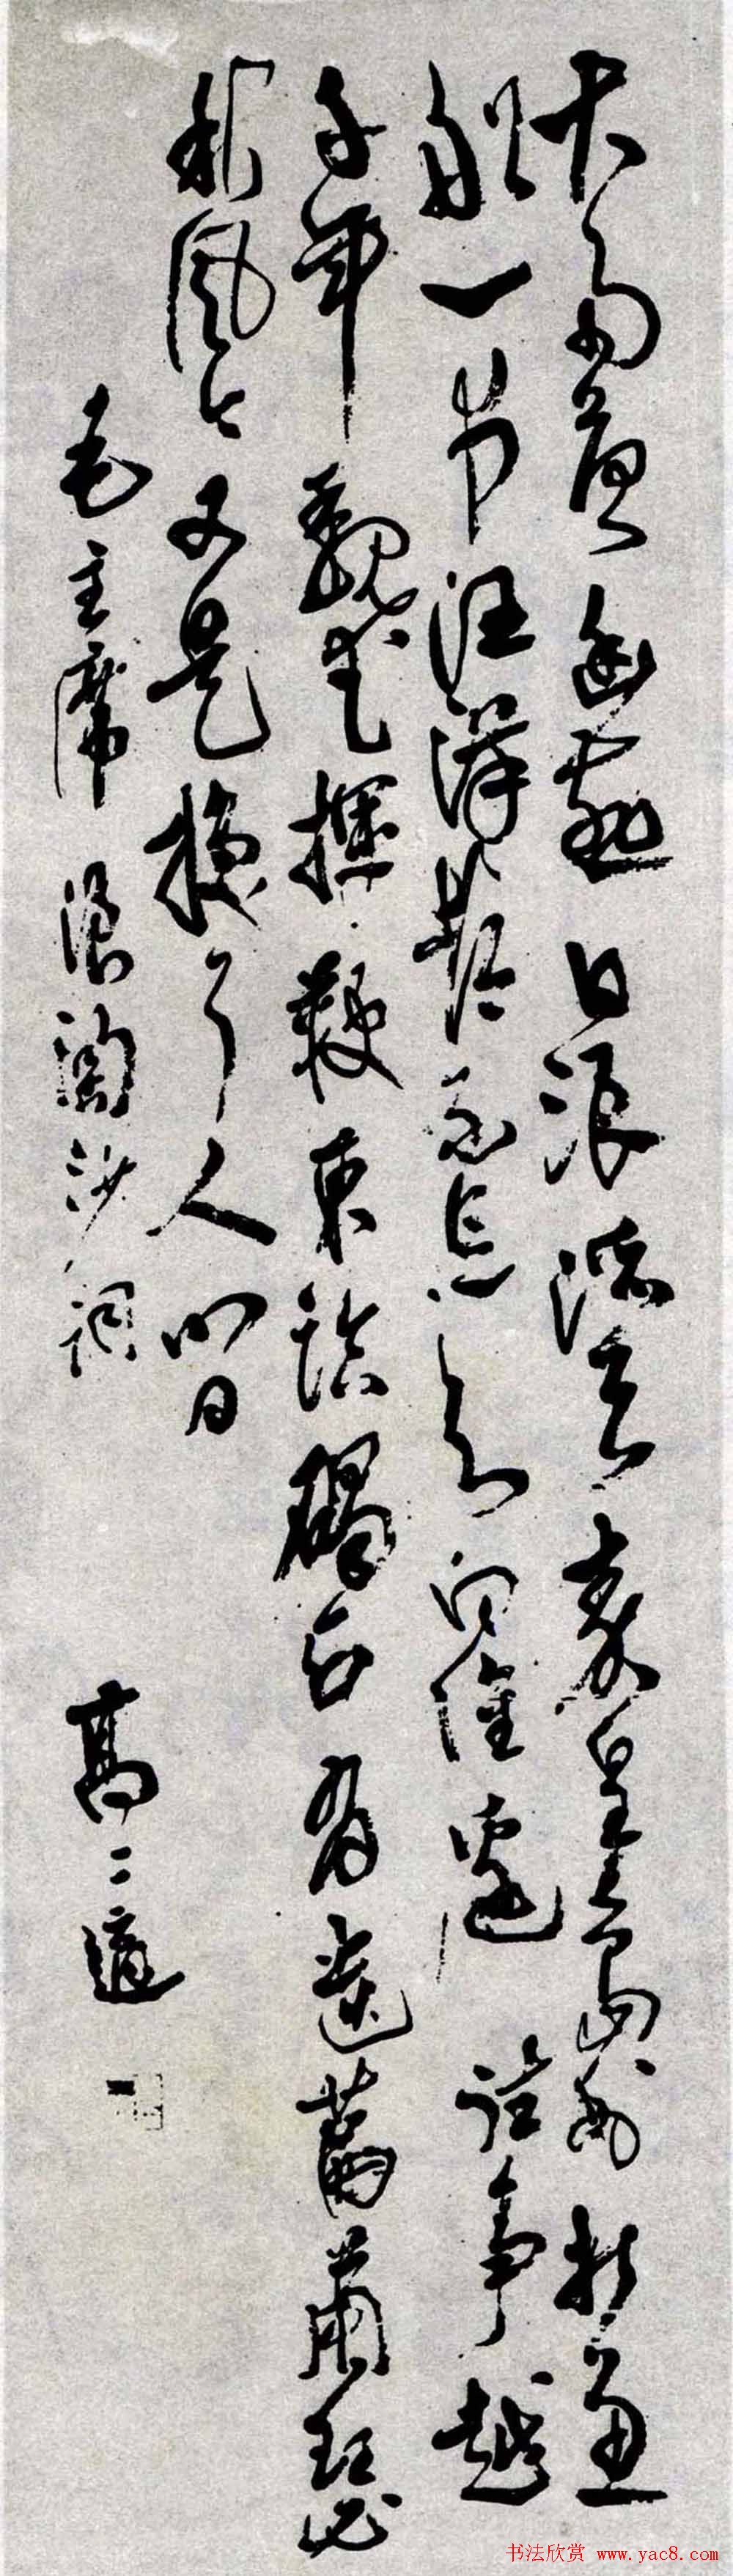 大雨落幽燕白浪滔天秦皇島外打魚
船一片汪洋都不見知向誰邊往事越
千年魏武揮鞭東臨碣石有遺篇蕭瑟
秋風今又是換了人間
毛主席浪淘沙詞 高二適
书法欣赏 www.yac8.com